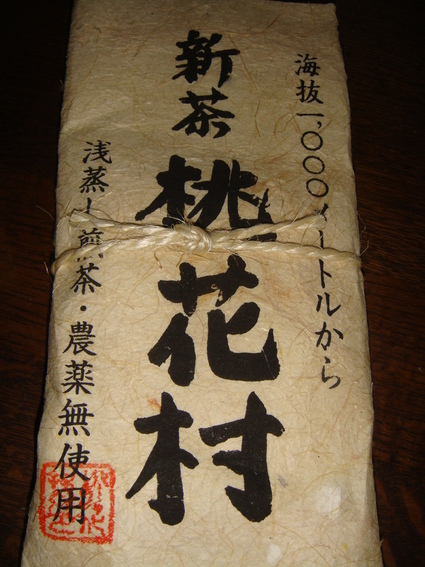 海抜一、〇〇〇メートルから
新茶
桃花村
浅蒸し煎茶・農薬無使用